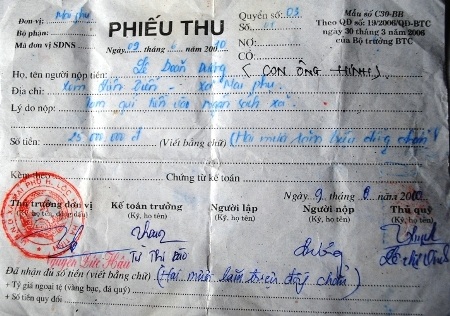 Đơn vị: Mai phụ
Bộ phận:
Mã đơn vị SDNS
PHIẾU THU
Ngày 09 tháng
Quyển số: 03
Số:
NỢ:
CÓ:
Mẫu số C30-BB
Theo QĐ số 19/2006/QĐ-BTC
ngày 30 tháng 3 năm 2006
của Bộ trưởng BTC
Họ, tên người nộp tiền: Lê Doãn Dương (CON ÔNG HÍNH)
Địa chỉ: Xóm - xã Mai phụ
Lý do nộp: ngân sách xã
Số tiền: 25.000.000đ (Viết bằng chữ) (Hai mươi lăm triệu đồng chẵn)
Kèm theo Chứng từ kế toán
Ngày 9 tháng năm
Thủ trưởng đơn vị
(Ký, họ tên, đóng dấu)
Kế toán trưởng
(Ký, họ tên)
Người lập
(Ký, họ tên)
Người nộp
(Ký, họ tên)
Thủ quỹ
(Ký, họ tên)
Nguyễn Đức Hảo
Từ Thị Đào
Đã nhận đủ số tiền (viết bằng chữ) (Hai mươi lăm triệu đồng chẵn)
+ Tỷ giá ngoại tệ (vàng bạc, đá quý)
+ Số tiền quy đổi